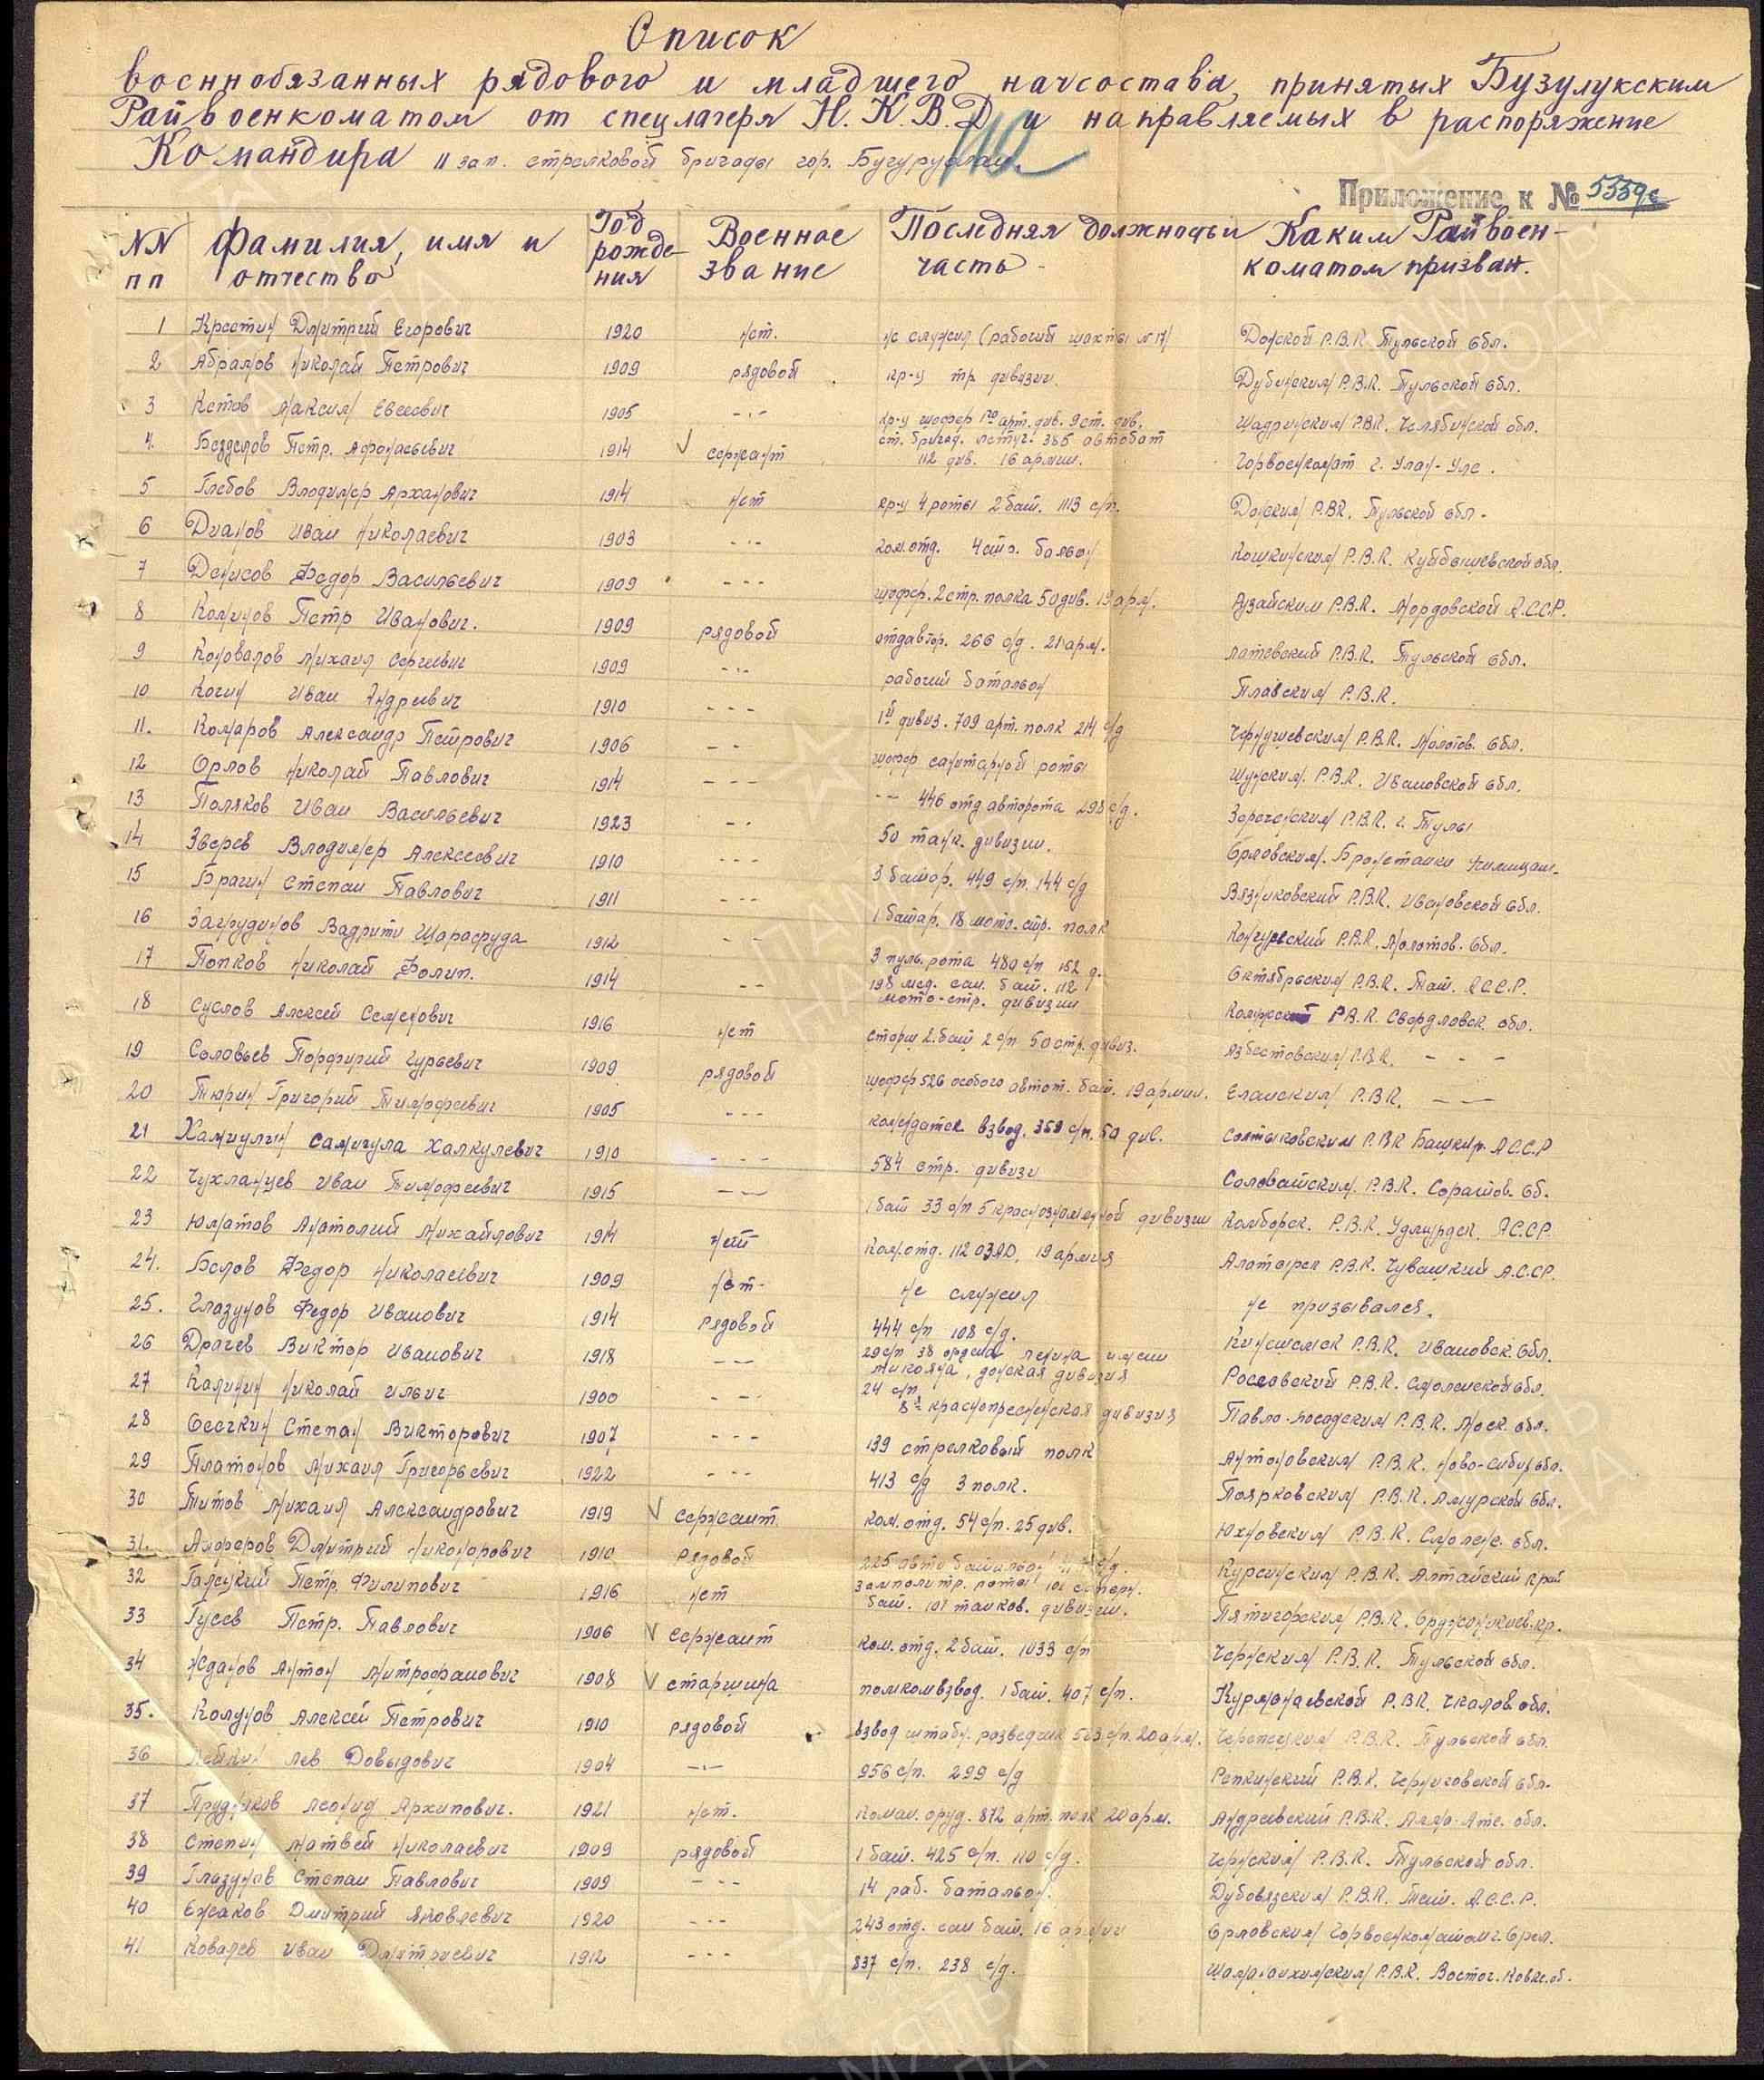 Список
военнообязанных рядового и младшего начсостава, принятых Бузулукским
Райвоенкоматом от спецлагеря Н.К.В.Д. и направляемых в распоряжение
Командира 11 зап. стрелковой бригады гор. Бугуруслан.
Приложение к № 5559с
NN пп Фамилия, имя и отчество Год рождения Военное звание Последняя должность и часть Каким Райвоенкоматом призван.
1 Дмитрий Егорович 1920 нет. не служил (рабочий шахты № 17) Донской Р.В.К. Тульской обл.
2 Абрамов Николай Петрович 1909 рядовой кр-ц тр. дивизии. Дубинским Р.В.К. Тульской обл.
3 Кетов Максим Евсеевич 1905 -"- кр-ц шофер 1го арт. див. 9 ст. див. Шадринским РВК. Челябинской обл.
4. Петр. Афонасьевич 1914 сержант ст. бригад. 385 автобат 112 див. 16 армии. Горвоенкомат г. Улан-Уде.
5 Глебов Владимер 1914 нет кр-ц 4 роты 2 бат. 1113 с/п. Донским РВК. Тульской обл.
6 Иван Николаевич 1903 -"- ком. отд. Кошкинским Р.В.К. Куйбышевской обл.
7 Денисов Федор Васильевич 1909 --- шофер. 2 стр. полка 50 див. 19 арм. Р.В.К. Мордовской А.С.С.Р.
8 Петр Иванович. 1909 рядовой 266 с/д. 21 арм. Р.В.К. Тульской обл.
9 Коновалов Михаил Сергеевич 1909 -"- рабочий батальон Плавским Р.В.К.
10 Иван Андреевич 1910 --- 1й дивиз. 709 арт. полк 214 с/д Чернушевским Р.В.К. Молотов. обл.
11. Комаров Александр Петрович 1906 -- шофер санитарной роты Шуским. Р.В.К. Ивановской обл.
12 Орлов Николай Павлович 1914 --- -- 446 отд авторота 298 с/д. Заречерским Р.В.К. г. Тулы
13 Поляков Иван Васильевич 1923 -- 50 танк. дивизии. Орловским.
14 Зверев Владимер Алексеевич 1910 --- 3 батар. 449 с/п. 144 с/д Вязниковский Р.В.К. Ивановской обл.
15 Брагин Степан Павлович 1911 --- 1 батар. 18 мото. стр. полк Р.В.К. Молотов. обл.
16 1912 -- 3 пуль. рота 480 с/п 152 д. Октябрьским Р.В.К. Тат. А.С.С.Р.
17 Попков Николай Филип. 1914 -- 198 мед. сан. бат. 112 мото-стр. дивизии Р.В.К. Свердловск. обл.
18 Суслов Алексей Семенович 1916 нет 2 бат 2 с/п 50 стр. дивиз. Азбестовским Р.В.К. - - -
19 Соловьев Порфирий Гурьевич 1909 рядовой шофер 526 особого автот. бат. 19 армии. Еланским Р.В.К. - --
20 Тюрин Григорий Тимофеевич 1905 --- комендатск взвод. 359 с/п. 50 див. Р.В.К. Башкир. А.С.С.Р
21 Хамиулин Самигула Халкулевич 1910 --- 584 стр. дивизи Р.В.К. Саратов. об.
22 Чухланцев Иван Тимофеевич 1915 --- 1 бат 33 с/п 5 краснознаменной дивизии Камборск. Р.В.К. Удмурдск. А.С.С.Р.
23 Юматов Анатолий Михайлович 1914 нет ком. отд. 112 19 армия Алатырск Р.В.К. Чувашкий А.С.С.Р.
24. Белов Федор Николаевич 1909 нет- не служил не призывался.
25. Глазунов Федор Иванович 1914 рядовой 444 с/п 108 с/д. Кинешемск Р.В.К. Ивановск. обл.
26 Драчев Виктор Иванович 1918 --- 29 с/п 38 ордена Ленина имени Микояна, донская дивизия Рославский Р.В.К. Смоленской обл.
27 Калинин Николай Ильич 1900 --- 24 с/п, 8я краснопресненская дивизия Павло-посадским Р.В.К. Моск. обл.
28 Степан Викторович 1907 --- 139 стрелковый полк Р.В.К. Ново-сибир. обл.
29 Платонов Михаил Григорьевич 1922 --- 413 с/д 3 полк. Поярковским Р.В.К. Амурской обл.
30 Титов Михаил Александрович 1919 сержант ком. отд. 54 с/п. 25 див. Юхновским Р.В.К. Смоленс. обл.
31. Алферов Дмитрий Никонорович 1910 рядовой 225 Р.В.К. Алтайский край
32 Галецкий Петр. Филипович 1916 нет замполитр. роты 101 бат. 101 танков. дивизии. Пятигорским Р.В.К. Орджоникиев. кр.
33 Гусев Петр. Павлович 1906 сержант ком. отд. 2 бат. 1033 с/п Чернским Р.В.К. Тульской обл.
34 Жданов Антон Митрофанович 1908 старшина помкомвзвод. 1 бат. 407 с/п. Курманаевской Р.В.К. Чкалов. обл.
35. Колунов Алексей Петрович 1910 рядовой взвод штабн. разведчик с/п. 20 арм. Черепецким Р.В.К. Тульской обл.
36 Лев Довыдович 1904 -"- 956 с/п. 299 с/д Репкинский Р.В.К. Черниговской обл.
37 Прудников Леонид Архипович. 1921 нет. коман. оруд. 872 арт. полк 20 арм. Андреевский Р.В.К. Алма-Ате. обл.
38 Степин Матвей Николаевич 1909 рядовой 1 бат. 425 с/п. 110 с/д. Чернским Р.В.К. Тульской обл.
39 Глазунов Степан Павлович 1909 --- 14 раб. батальон. Дубовязским Р.В.К. А.С.С.Р.
40 Ежаков Дмитрий Яковлевич 1920 --- 243 отд. сан бат. 16 армии Орловским Горвоенкоматом г. Орел.
41 Ковалев Иван Дмитриевич 1912 --- 837 с/п. 238 с/д. Р.В.К. Восточ.